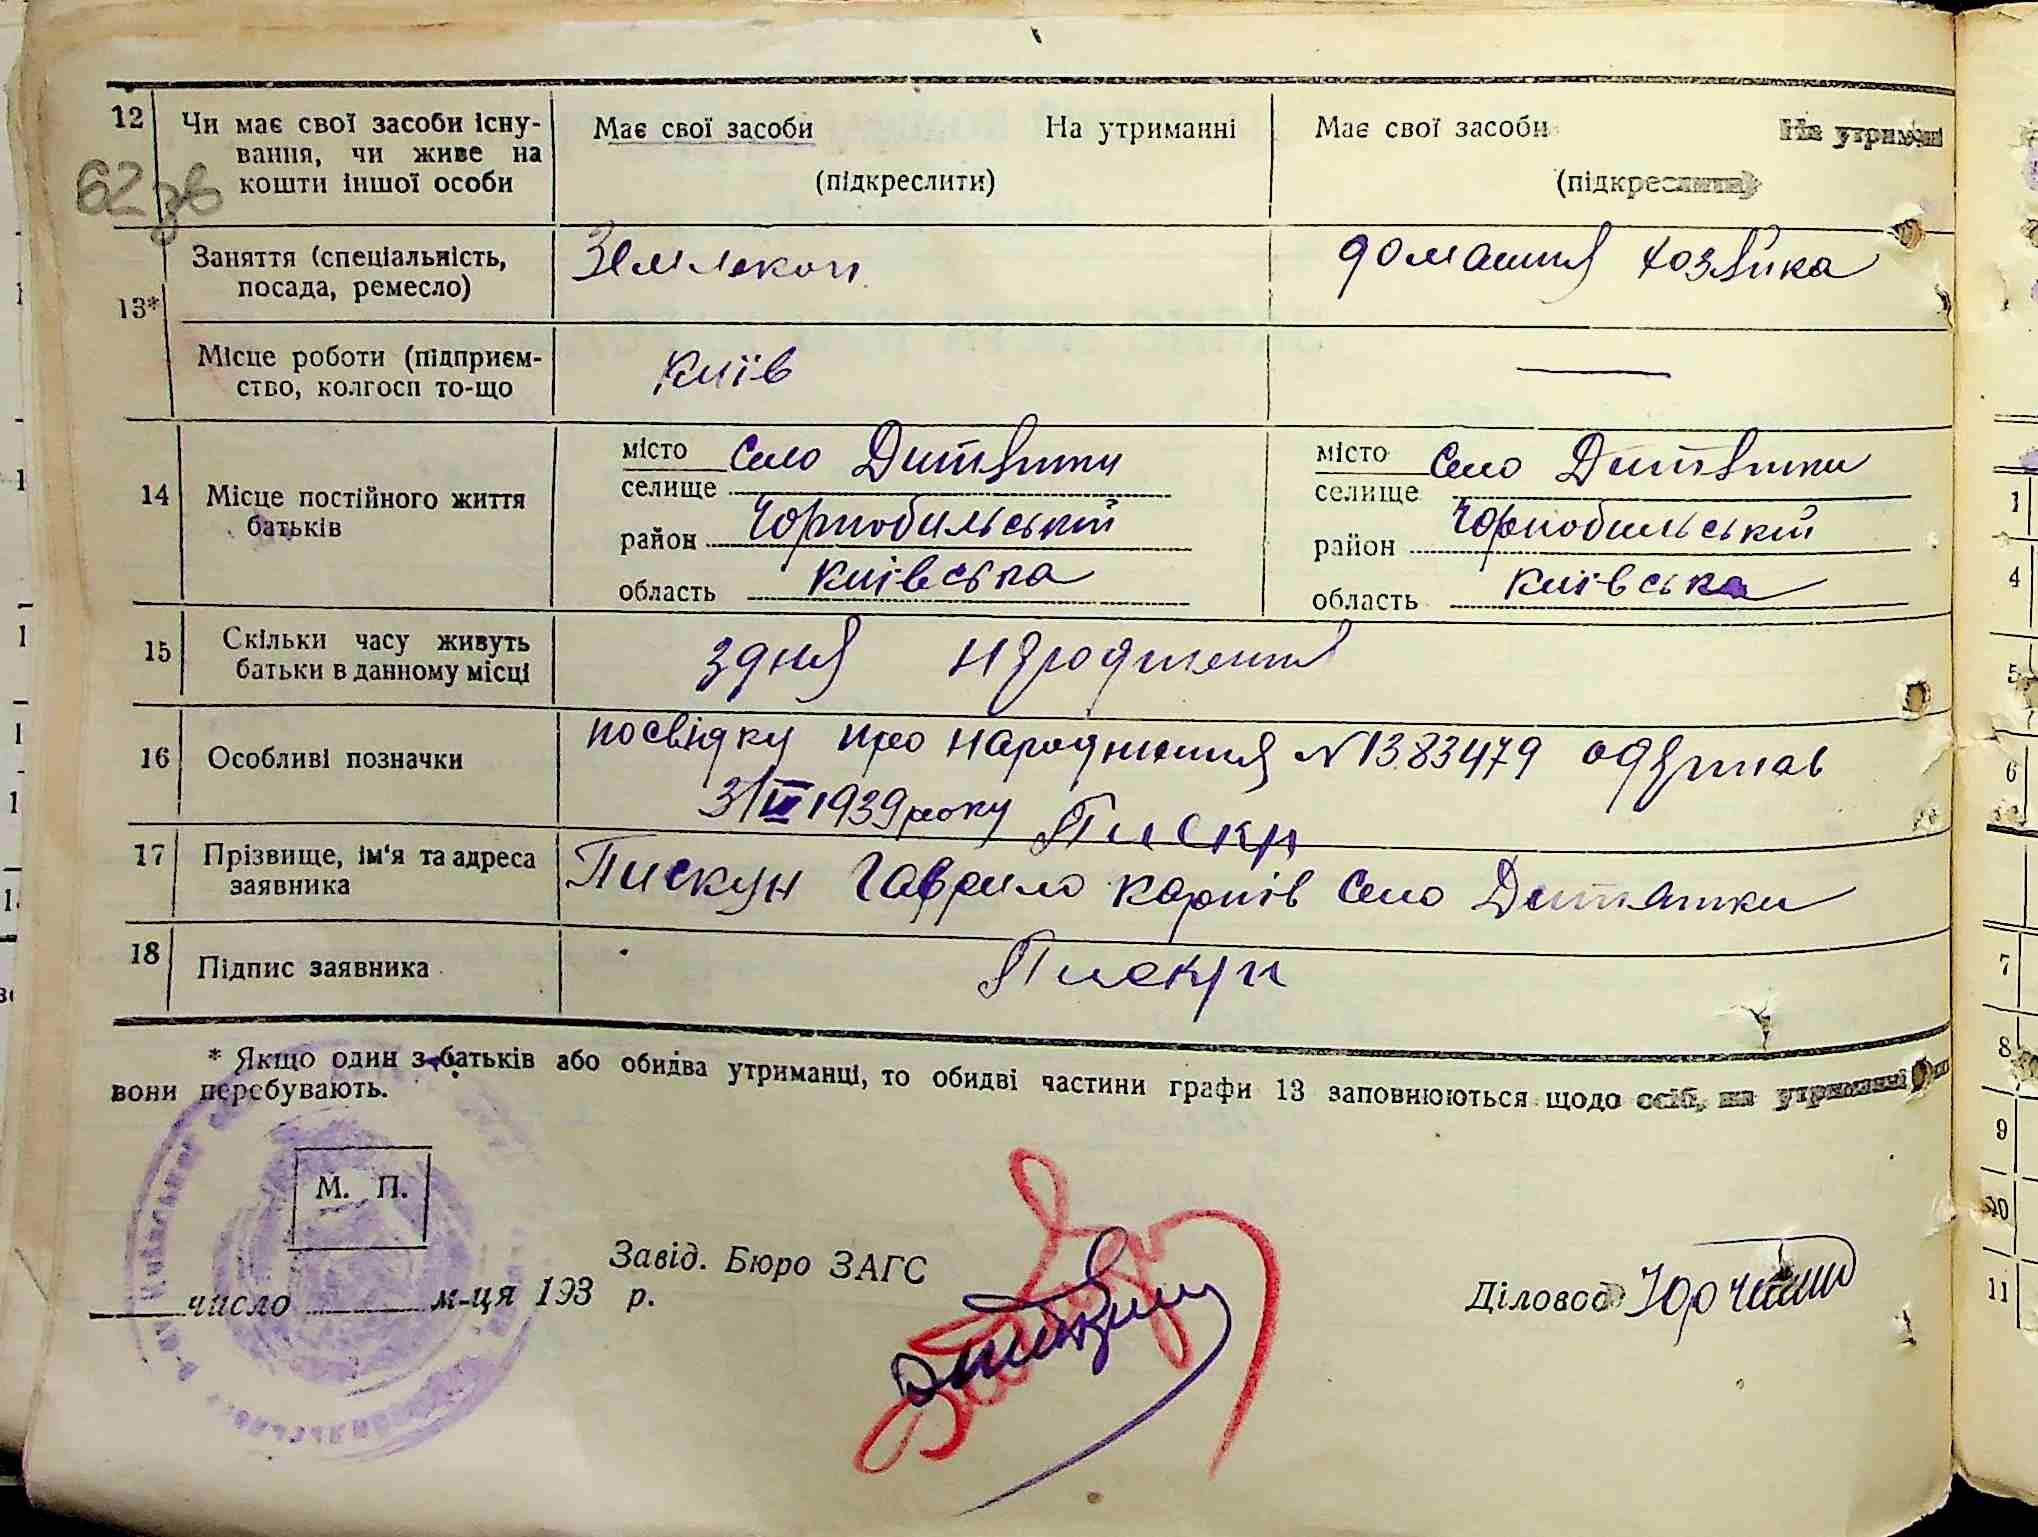 12 Чи має свої засоби існу-
вання, чи живе на
кошти іншої особи
62 зв
Має свої засоби На утриманні
(підкреслити)
Має свої засоби На утриманні
(підкреслити)
13*
Заняття (спеціальність,
посада, ремесло)
Землекоп
домашня хозяйка
Місце роботи (підприєм-
ство, колгосп то-що
Київ
—
14 Місце постійного життя
батьків
місто Село Дитятки
селище
район Чорнобильський
область Київська
місто Село Дитятки
селище
район Чорнобильський
область Київська
15 Скільки часу живуть
батьки в данному місці
з дня
16 Особливі позначки
посвідку про народження N1383479 одержав
1939 року Писки
17 Прізвище, ім'я та адреса
заявника
Пискун Гаврило Карпів Село Дитятки
18 Підпис заявника
* Якщо один з батьків або обидва утриманці, то обидві частини графи 13 заповнюються щодо осіб, на утриманні
вони перебувають.
М. П.
Завід. Бюро ЗАГС
число м-ця 193 р.
Діловод
1
4
5
6
7
8
9
10
11